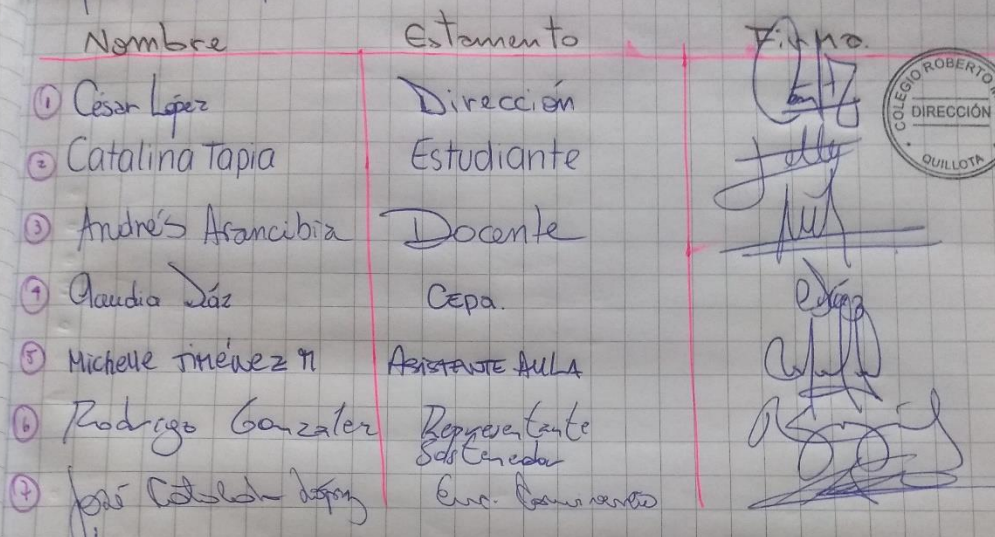 Nombre Estamento Firma.
1 César López Dirección
2 Catalina Tapia Estudiante
3 Andrés Arancibia Docente
4 Claudia Díaz Cepa.
5 Michelle Jiménez M ASISTENTE AULA
6 Rodrigo Gonzalez Representante
Sostenedor
7 José Catalán Enc.
COLEGIO ROBERTO
DIRECCIÓN
QUILLOTA